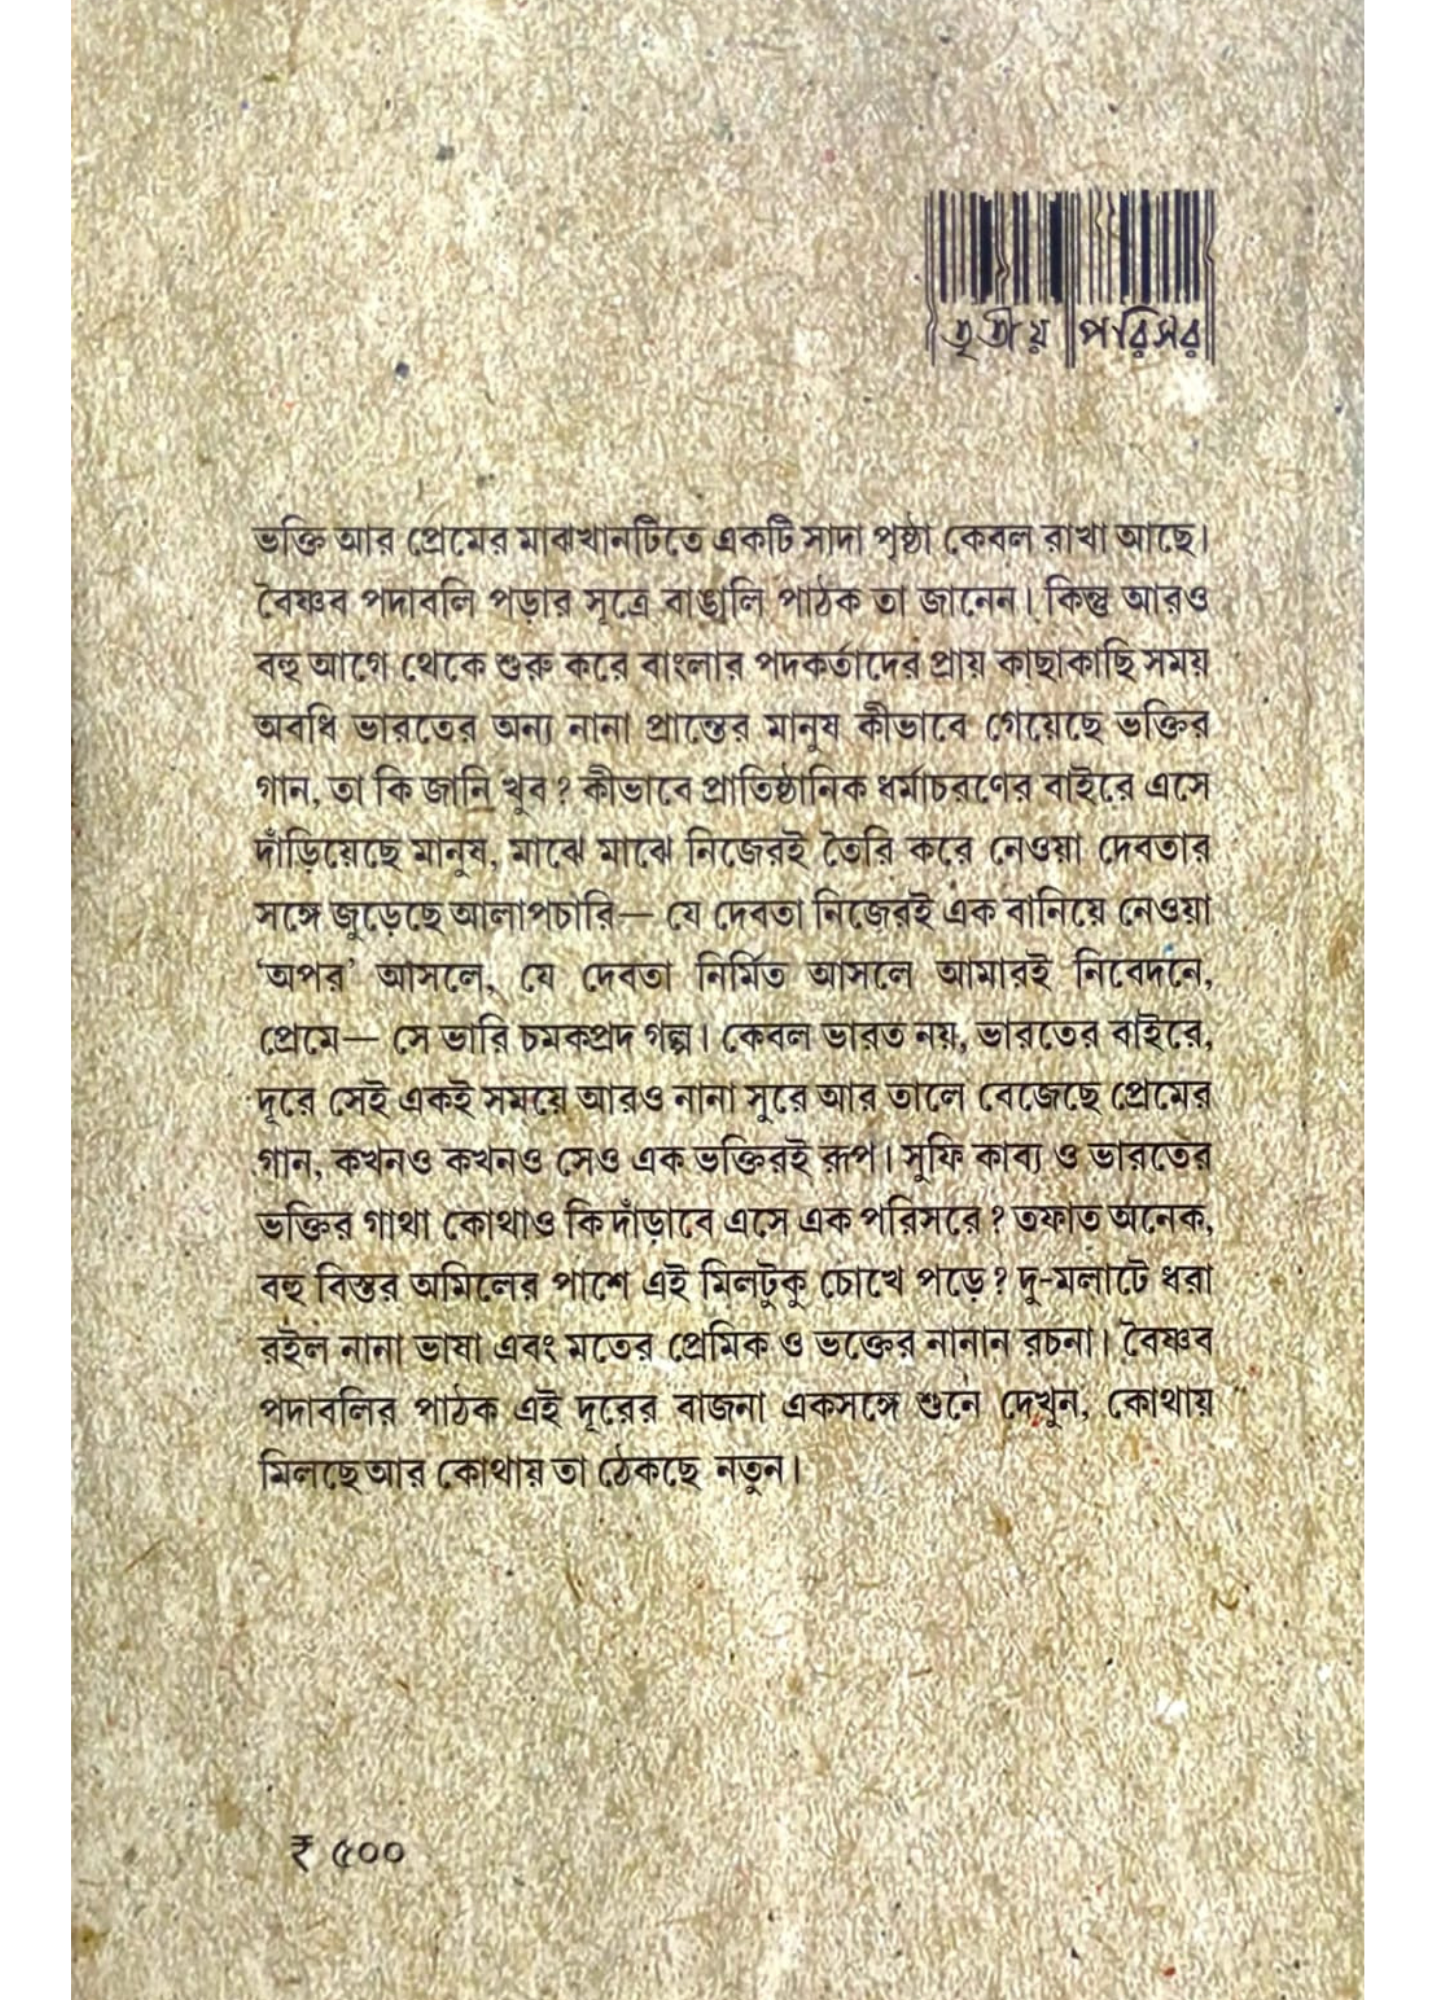 তৃতীয় পরিসর
ভক্তি আর প্রেমের মাঝখানটিতে একটি সাদা পৃষ্ঠা কেবল রাখা আছে।
বৈষ্ণব পদাবলি পড়ার সূত্রে বাঙালি পাঠক তা জানেন। কিন্তু আরও
বহু আগে থেকে শুরু করে বাংলার পদকর্তাদের প্রায় কাছাকাছি সময়
অবধি ভারতের অন্য নানা প্রান্তের মানুষ কীভাবে গেয়েছে ভক্তির
গান, তা কি জানি খুব? কীভাবে প্রাতিষ্ঠানিক ধর্মাচরণের বাইরে এসে
দাঁড়িয়েছে মানুষ, মাঝে মাঝে নিজেরই তৈরি করে নেওয়া দেবতার
সঙ্গে জুড়েছে আলাপচারি— যে দেবতা নিজেরই এক বানিয়ে নেওয়া
‘অপর’ আসলে, যে দেবতা নির্মিত আসলে আমারই নিবেদনে,
প্রেমে— সে ভারি চমকপ্রদ গল্প। কেবল ভারত নয়, ভারতের বাইরে,
দূরে সেই একই সময়ে আরও নানা সুরে আর তালে বেজেছে প্রেমের
গান, কখনও কখনও সেও এক ভক্তিরই রূপ। সুফি কাব্য ও ভারতের
ভক্তির গাথা কোথাও কি দাঁড়াবে এসে এক পরিসরে? তফাত অনেক,
বহু বিস্তর অমিলের পাশে এই মিলটুকু চোখে পড়ে? দু-মলাটে ধরা
রইল নানা ভাষা এবং মতের প্রেমিক ও ভক্তের নানান রচনা। বৈষ্ণব
পদাবলির পাঠক এই দূরের বাজনা একসঙ্গে শুনে দেখুন, কোথায়
মিলছে আর কোথায় তা ঠেকছে নতুন।
₹ ৫০০